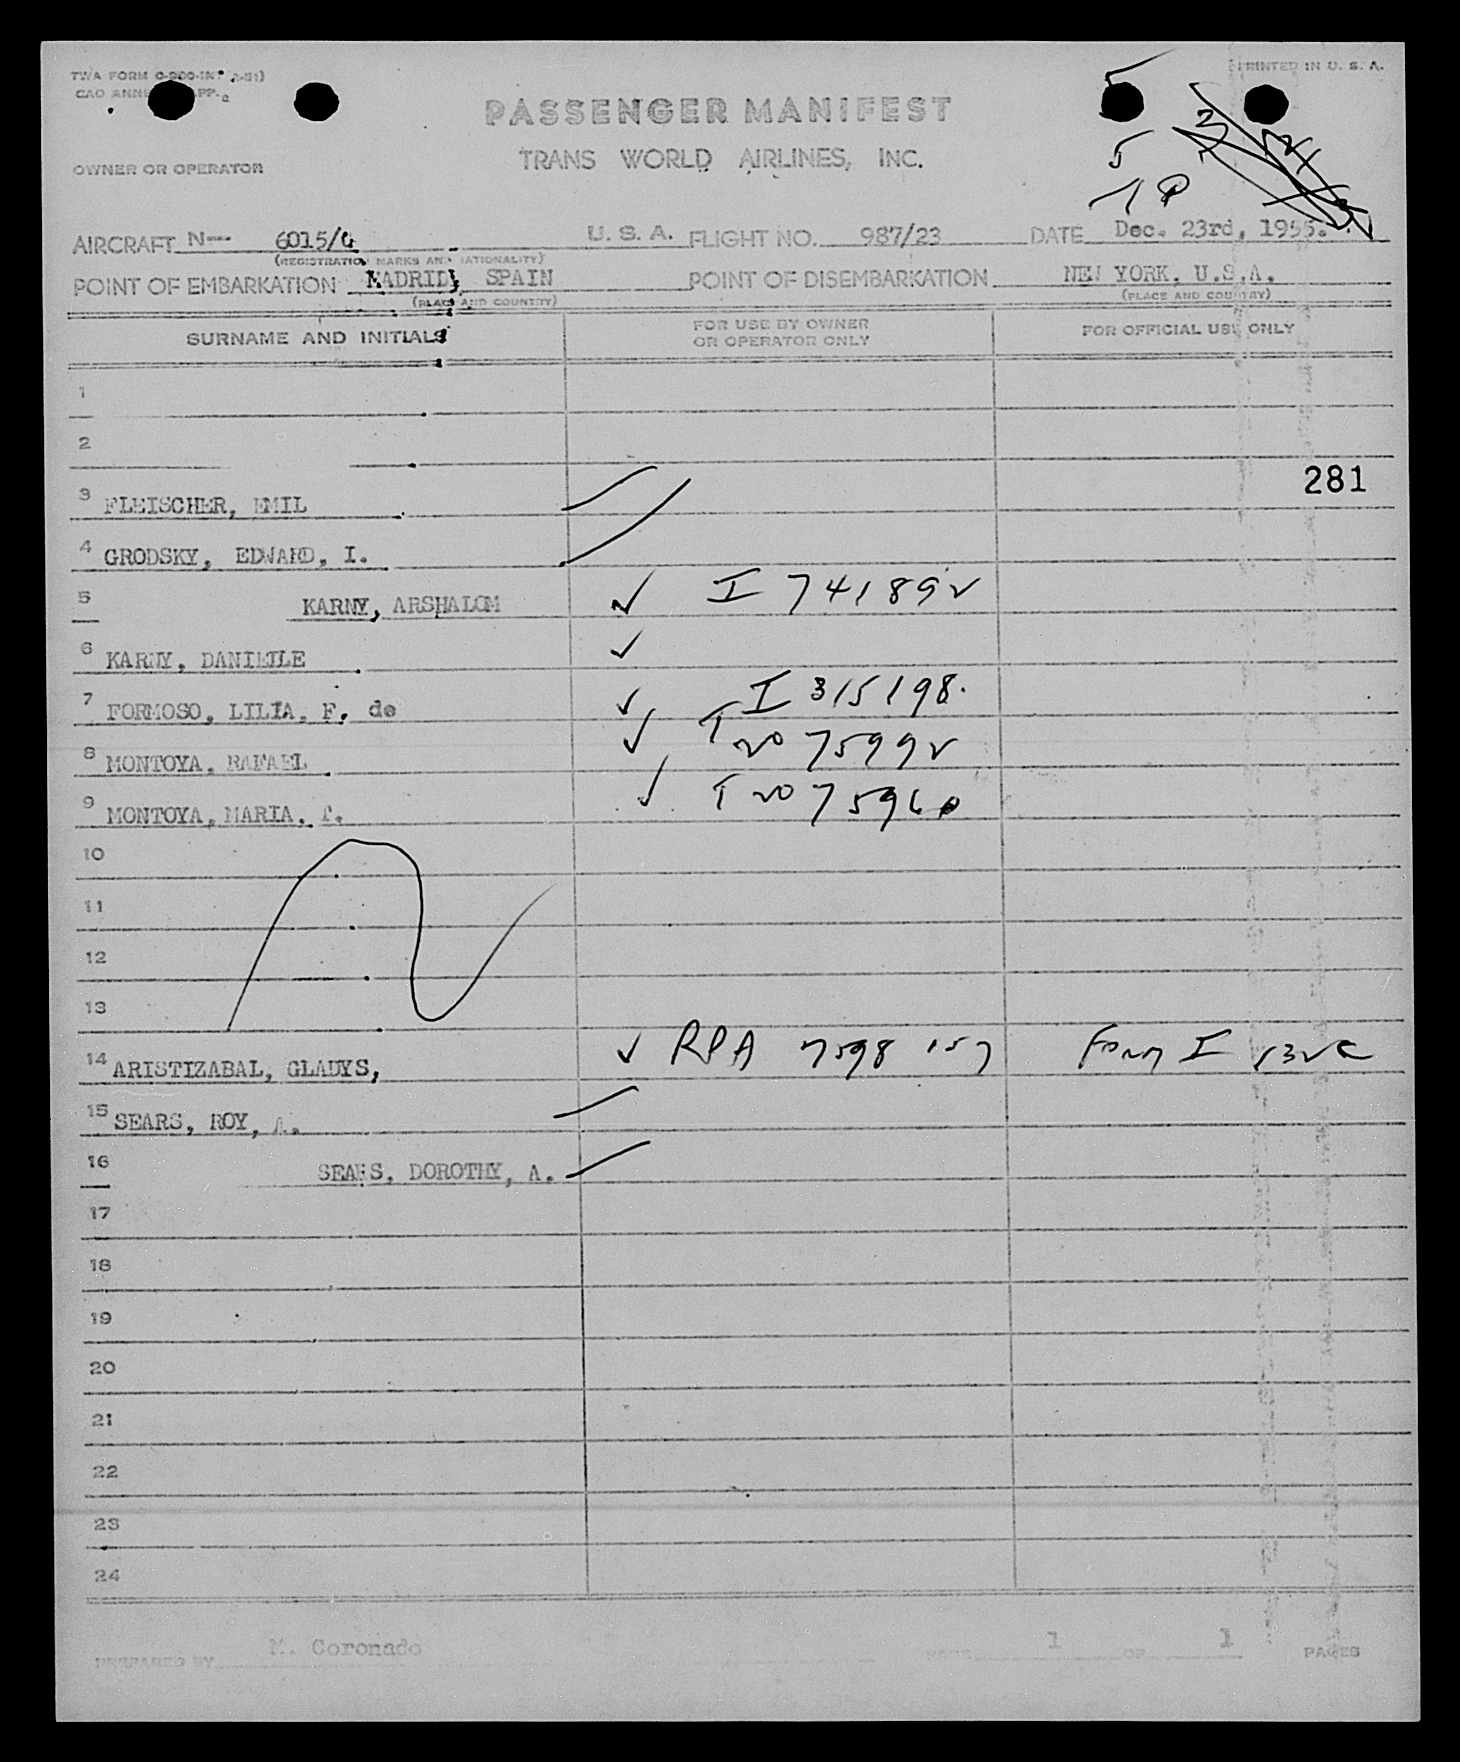 TWA FORM
PRINTED IN U. S. A.
CAO
PASSENGER MANIFEST
5
5
OWNER OR OPERATOR
TRANS WORLD AIRLINES, INC.
AIRCRAFT N-- 6015/C U. S. A. FLIGHT NO. 987/23 DATE Dec. 23rd, 1955.
(REGISTRATION MARKS AND NATIONALITY)
POINT OF EMBARKATION MADRID, SPAIN POINT OF DISEMBARKATION NEW YORK, U.S.A.
(PLACE AND COUNTRY) (PLACE AND COUNTRY)
SURNAME AND INITIALS FOR USE BY OWNER OR OPERATOR ONLY FOR OFFICIAL USE ONLY
1
2
281
3 FLEISCHER, EMIL
4 GRODSKY, EDWARD, I.
5 KARNY, ARSHALOM ✓ I 741892
6 KARNY, DANIELLE ✓
7 FORMOSO, LILIA, F. de ✓ I 315198.
8 MONTOYA, RAFAEL ✓ T 2075992
9 MONTOYA, MARIA, ✓ T 2075960
10
11
12
13
14 ARISTIZABAL, GLADYS, ✓ RPA 7598 157 Form I 132C
15 SEARS, ROY, A.
16 SEARS, DOROTHY, A.
17
18
19
20
21
22
23
24
PREPARED BY M. Coronado PAGE 1 OF 1 PAGES